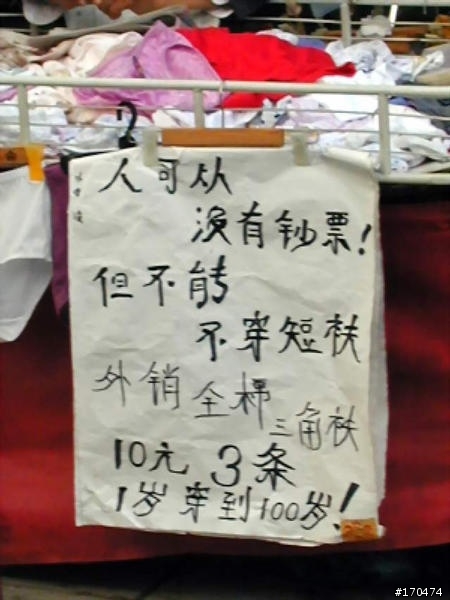 人可从
没有钞票!
但不能
不穿短衭
外销全棉
三角衭
10元3条
1岁穿到100岁!
#170474